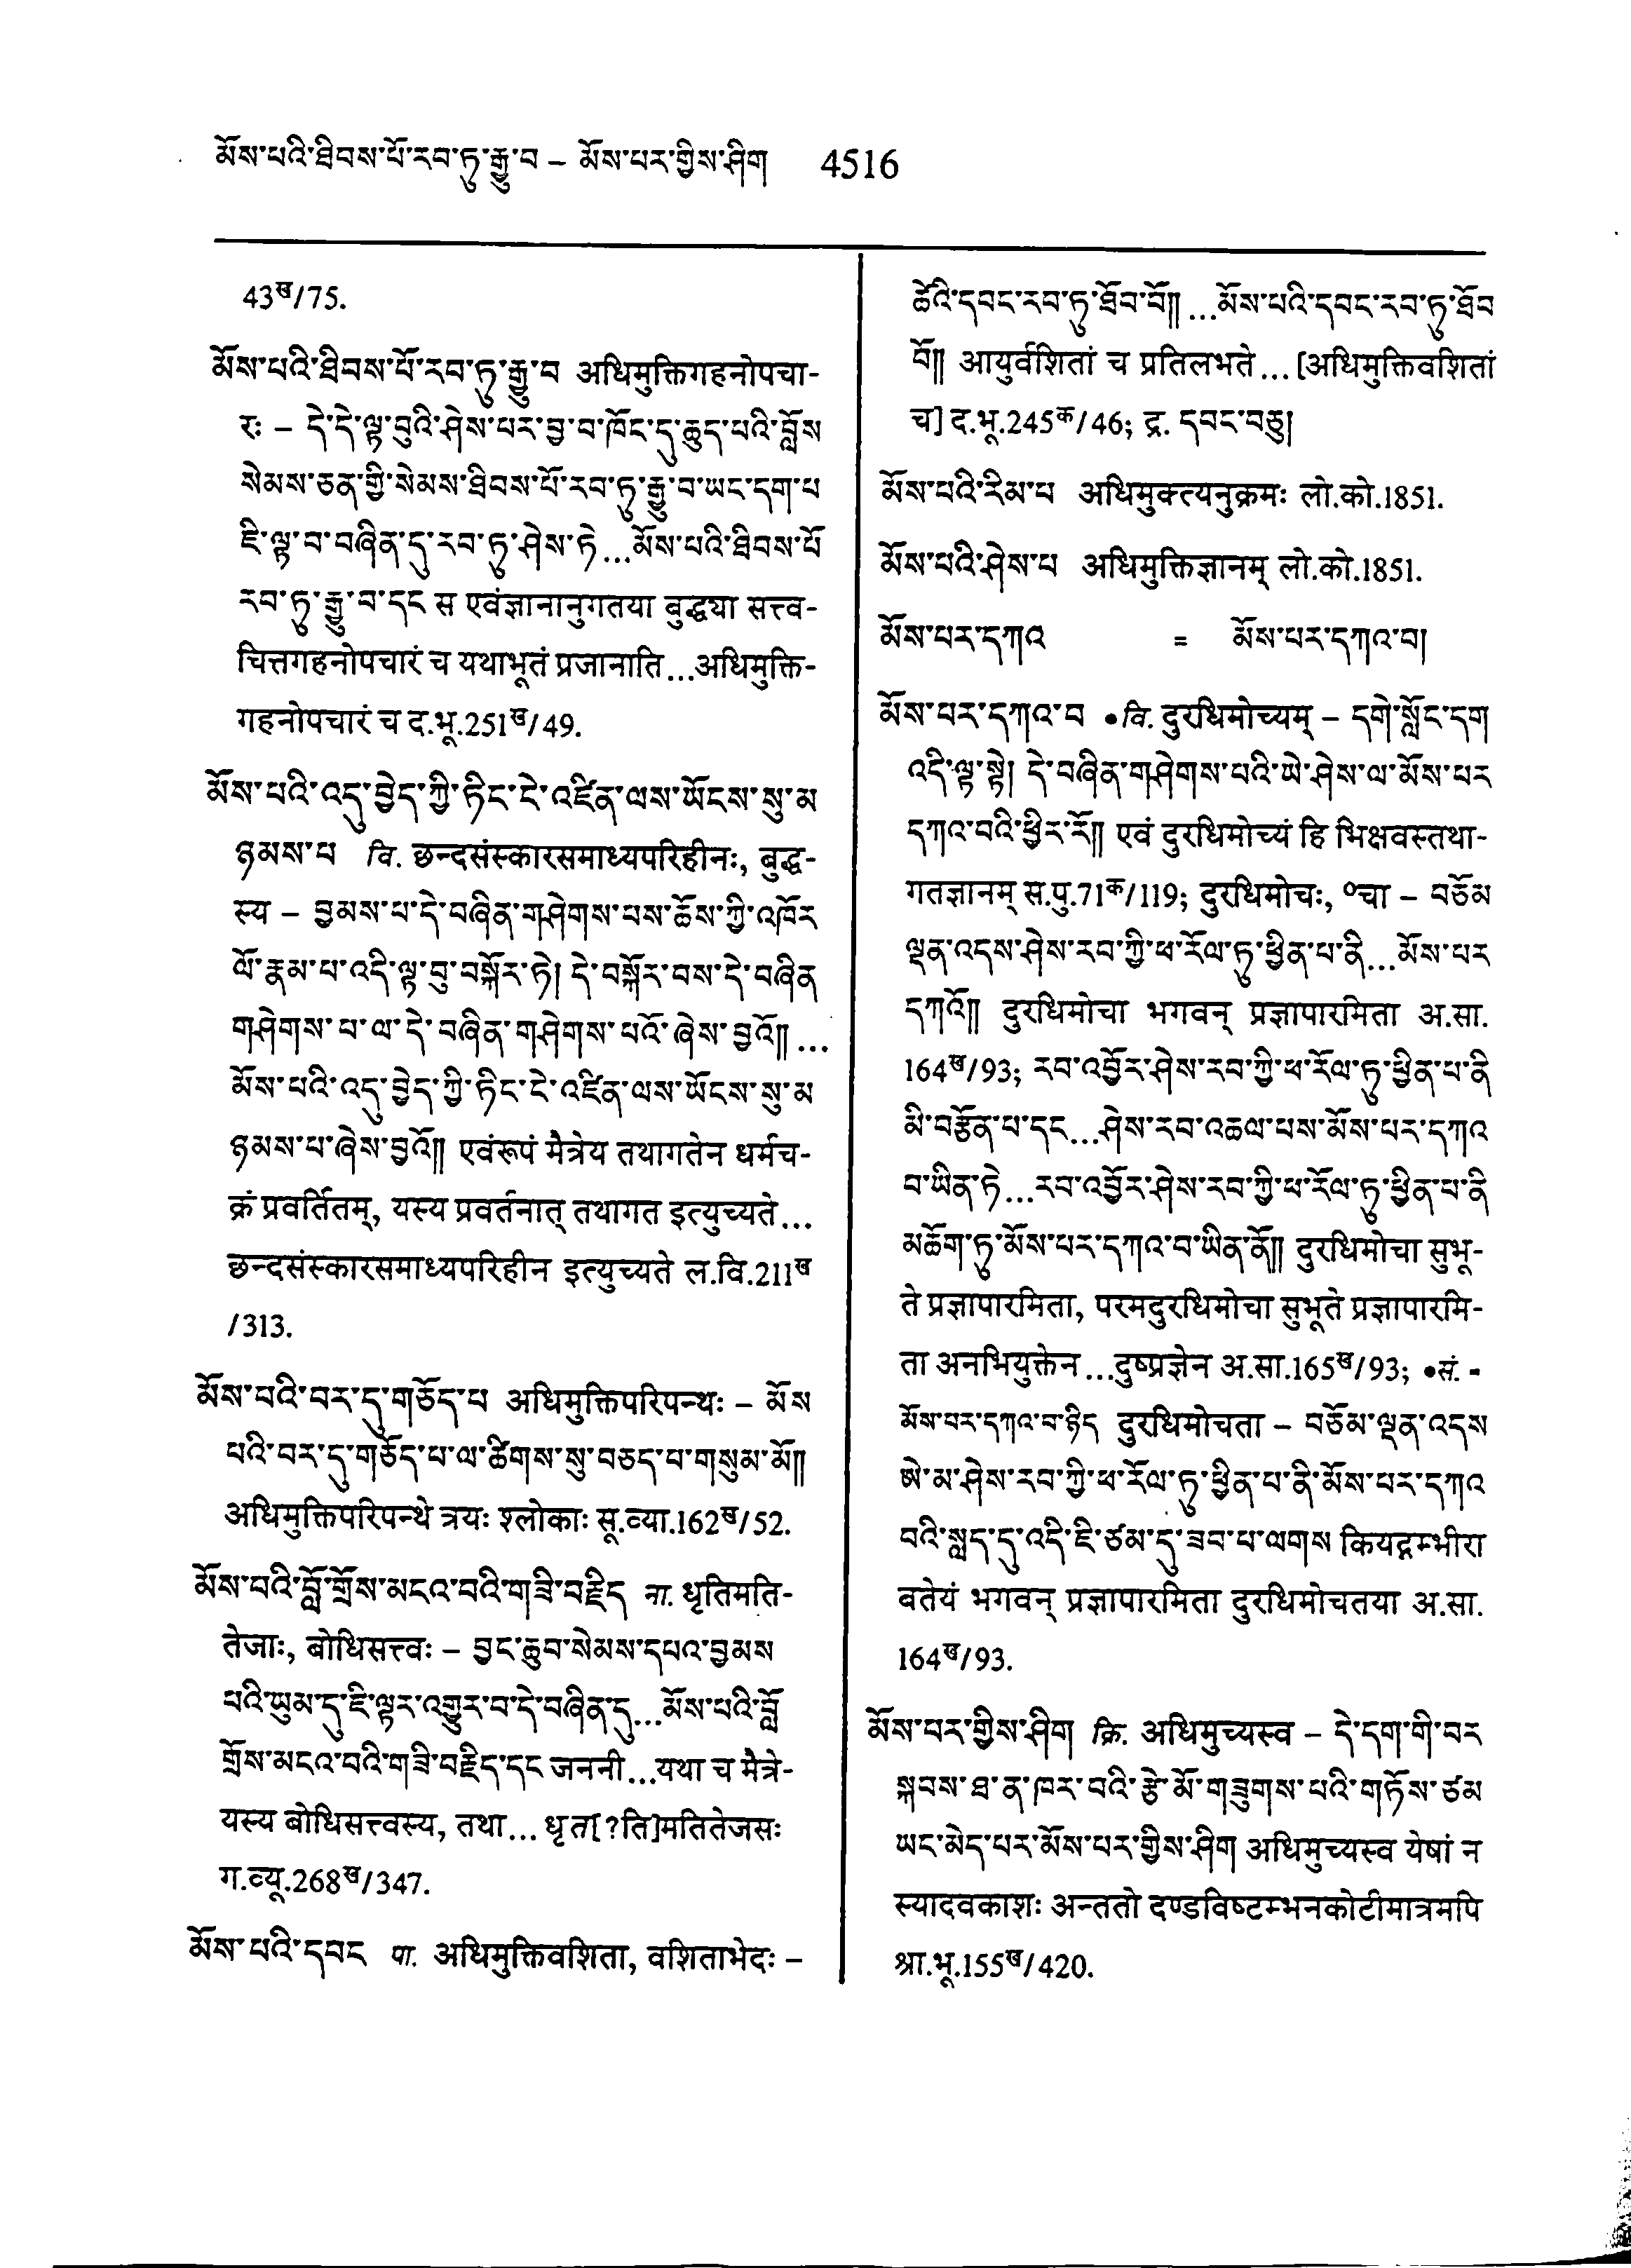 མོས་པའི་ཐིབས་པོ་རབ་ཏུ་རྒྱུ་བ – མོས་པར་གྱིས་ཤིག 4516
43ख/75.
མོས་པའི་ཐིབས་པོ་རབ་ཏུ་རྒྱུ་བ अधिमुक्तिगहनोपचा-
रः – དེ་དེ་ལྟ་བུའི་ཤེས་པར་བྱ་བ་ཁོང་དུ་ཆུད་པའི་བློས
སེམས་ཅན་གྱི་སེམས་ཐིབས་པོ་རབ་ཏུ་རྒྱུ་བ་ཡང་དག་པ
ཇི་ལྟ་བ་བཞིན་དུ་རབ་ཏུ་ཤེས་ཏེ...མོས་པའི་ཐིབས་པོ
རབ་ཏུ་རྒྱུ་བ་དང स एवंज्ञानानुगतया बुद्ध्या सत्त्व-
चित्तगहनोपचारं च यथाभूतं प्रजानाति...अधिमुक्ति-
गहनोपचारं च द.भू.251ख/49.
མོས་པའི་འདུ་བྱེད་ཀྱི་ཏིང་ངེ་འཛིན་ལས་ཡོངས་སུ་མ
ཉམས་པ वि. छन्दसंस्कारसमाध्यपरिहीनः, बुद्ध-
स्य – བྱམས་པ་དེ་བཞིན་གཤེགས་པས་ཆོས་ཀྱི་འཁོར
ལོ་རྣམ་པ་འདི་ལྟ་བུ་བསྐོར་ཏེ། དེ་བསྐོར་བས་དེ་བཞིན
གཤེགས་པ་ལ་དེ་བཞིན་གཤེགས་པའོ་ཞེས་བྱའོ།། ...
མོས་པའི་འདུ་བྱེད་ཀྱི་ཏིང་ངེ་འཛིན་ལས་ཡོངས་སུ་མ
ཉམས་པ་ཞེས་བྱའོ།། एवंरूपं मैत्रेय तथागतेन धर्मच-
क्रं प्रवर्तितम्, यस्य प्रवर्तनात् तथागत इत्युच्यते...
छन्दसंस्कारसमाध्यपरिहीन इत्युच्यते ल.वि.211ख
/313.
མོས་པའི་བར་དུ་གཅོད་པ अधिमुक्तिपरिपन्थः – མོས
པའི་བར་དུ་གཅོད་པ་ལ་ཚིགས་སུ་བཅད་པ་གསུམ་མོ།།
अधिमुक्तिपरिपन्थे त्रयः श्लोकाः सू.व्या.162ख/52.
མོས་པའི་བློ་གྲོས་མངའ་བའི་གཟི་བརྗིད ना. धृतिमति-
तेजाः, बोधिसत्त्वः – བྱང་ཆུབ་སེམས་དཔའ་བྱམས
པའི་ཡུམ་དུ་ཇི་ལྟར་འགྱུར་བ་དེ་བཞིན་དུ...མོས་པའི་བློ
གྲོས་མངའ་བའི་གཟི་བརྗིད་དང जननी...यथा च मैत्रे-
यस्य बोधिसत्त्वस्य, तथा... धृत[?ति]मतितेजसः
ग.व्यू.268ख/347.
མོས་པའི་དབང पा. अधिमुक्तिवशिता, वशिताभेदः –
ཚེའི་དབང་རབ་ཏུ་ཐོབ་བོ།། ...མོས་པའི་དབང་རབ་ཏུ་ཐོབ
བོ།། आयुर्वशितां च प्रतिलभते... [अधिमुक्तिवशितां
च] द.भू.245क/46; द्र. དབང་བཅུ།
མོས་པའི་རིམ་པ अधिमुक्त्यनुक्रमः लो.को.1851.
མོས་པའི་ཤེས་པ अधिमुक्तिज्ञानम् लो.को.1851.
མོས་པར་དཀའ = མོས་པར་དཀའ་བ།
མོས་པར་དཀའ་བ •वि. दुरधिमोच्यम् – དགེ་སློང་དག
འདི་ལྟ་སྟེ། དེ་བཞིན་གཤེགས་པའི་ཡེ་ཤེས་ལ་མོས་པར
དཀའ་བའི་ཕྱིར་རོ།། एवं दुरधिमोच्यं हि भिक्षवस्तथा-
गतज्ञानम् स.पु.71क/119; दुरधिमोचः, ०चा – བཅོམ
ལྡན་འདས་ཤེས་རབ་ཀྱི་ཕ་རོལ་ཏུ་ཕྱིན་པ་ནི...མོས་པར
དཀའོ།། दुरधिमोचा भगवन् प्रज्ञापारमिता अ.सा.
164ख/93; རབ་འབྱོར་ཤེས་རབ་ཀྱི་ཕ་རོལ་ཏུ་ཕྱིན་པ་ནི
མི་བརྩོན་པ་དང...ཤེས་རབ་འཆལ་པས་མོས་པར་དཀའ
བ་ཡིན་ཏེ...རབ་འབྱོར་ཤེས་རབ་ཀྱི་ཕ་རོལ་ཏུ་ཕྱིན་པ་ནི
མཆོག་ཏུ་མོས་པར་དཀའ་བ་ཡིན་ནོ།། दुरधिमोचा सुभू-
ते प्रज्ञापारमिता, परमदुरधिमोचा सुभूते प्रज्ञापारमि-
ता अनभियुक्तेन...दुष्प्रज्ञेन अ.सा.165ख/93; •सं. =
མོས་པར་དཀའ་བ་ཉིད दुरधिमोचता – བཅོམ་ལྡན་འདས
ཨེ་མ་ཤེས་རབ་ཀྱི་ཕ་རོལ་ཏུ་ཕྱིན་པ་ནི་མོས་པར་དཀའ
བའི་སླད་དུ་འདི་ཇི་ཙམ་དུ་ཟབ་པ་ལགས कियद्गम्भीरा
बतेयं भगवन् प्रज्ञापारमिता दुरधिमोचतया अ.सा.
164ख/93.
མོས་པར་གྱིས་ཤིག क्रि. अधिमुच्यस्व – དེ་དག་གི་བར
སྐབས་ཐ་ན་ཁར་བའི་རྩེ་མོ་གཟུགས་པའི་གཏོས་ཙམ
ཡང་མེད་པར་མོས་པར་གྱིས་ཤིག अधिमुच्यस्व येषां न
स्यादवकाशः अन्ततो दण्डविष्टम्भनकोटीमात्रमपि
श्रा.भू.155ख/420.